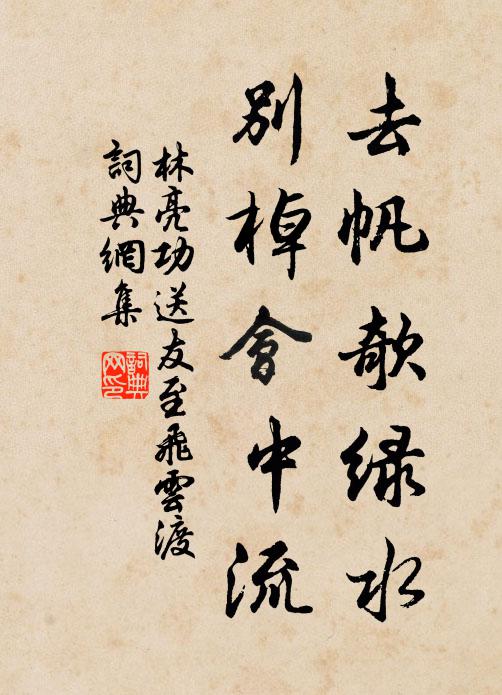 去帆欹绿水
別棹會中流
林亮功送友至飛雲渡
詞典網集
詞典
网印